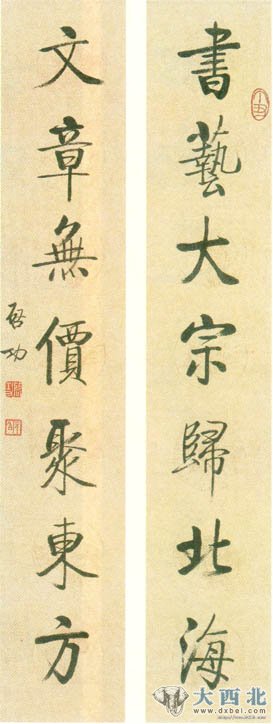 書藝大宗歸北海
文章無價聚東方
啓功
大西北
www.dxbei.com